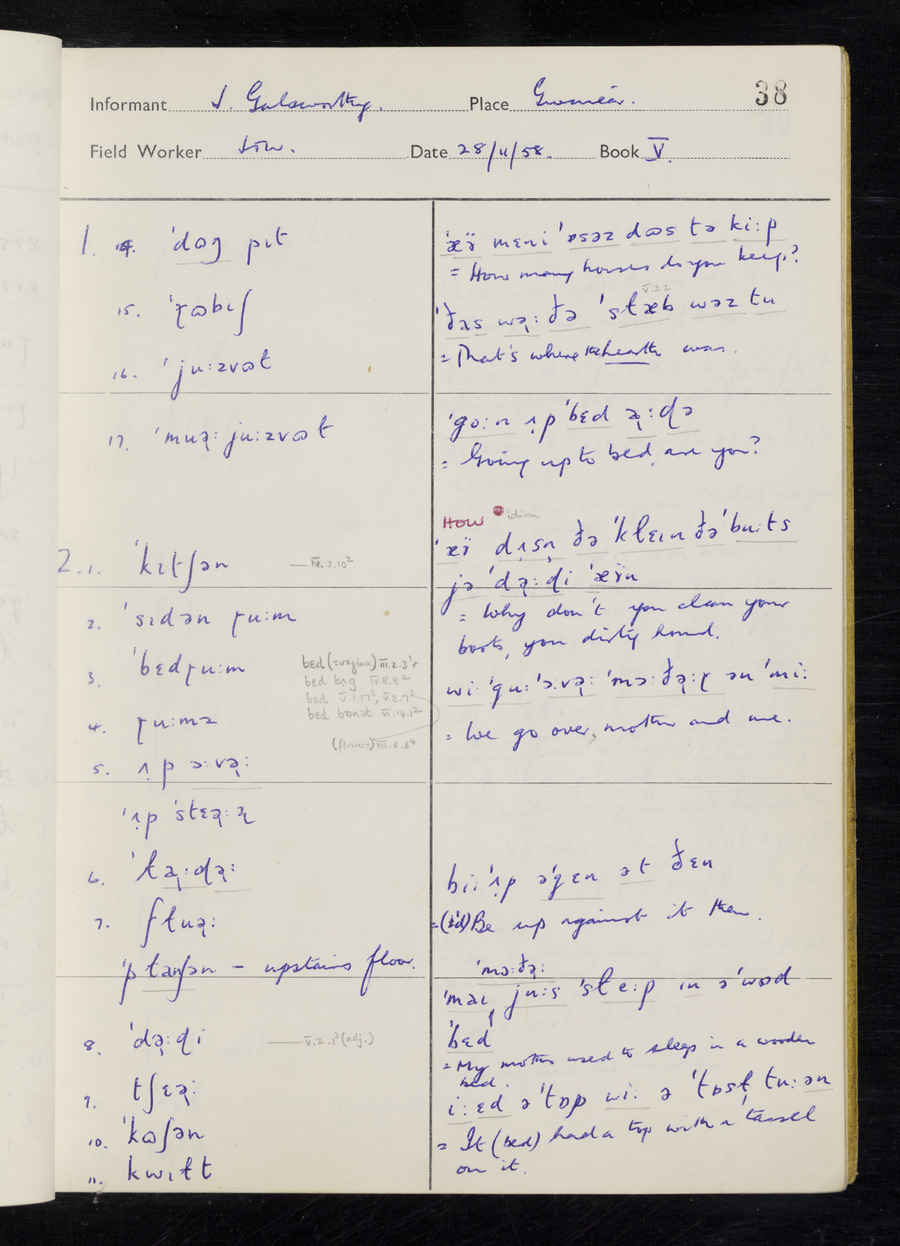 38
Informant J. Galsworthy. Place
Field Worker Date 28/11/58. Book V.
1. 14. ˈdɒg pɪt
15. ˈɽɒbɪʃ
16. ˈjuːzvɒt
17. ˈmuə̣ː juːzvɒt
2. 1. ˈkɪtʃən — IV.3.10²
2. ˈsɪdən ɽuːm
3. ˈbɛdɽuːm
bed (=vagina) III.2.3'r
bed bag IV.8.8²
bed V.1.17², V.2.7²
bed bɒnət VI.14.1²
4. ɽuːmz
5. ʌ̣p ɔːvə̣ː
ˈʌ̣p ˈstɛə̣ːz̩
6. ˈɫə̣ːdə̣ː
7. ʃɫuə̣ː
upstairs floor.
8. ˈdə̣ːɖi — V.2.1² (adj.)
9. tʃɛə̣ː
10. ˈkɒʃən
11. kwɪɫt
ˈæÿ mɛni ˈɒsəz dɒs tə kiːp
= How many horses do you keep?
V.2.2
ˈð̣as wə̣ː ð̣ə ˈstæb wəz tu
= That's where the hearth was.
ˈgoːn ʌ̣p ˈbɛd ə̣ːdə
= Going up to bed, are you?
HOW idiom
ˈæÿ dʌsn ð̣ə ˈkɫɛɪn ð̣ə ˈbuːts
jə ˈdə̣ːɖi ˈæÿn
= Why don't you clean your
boots, you dirty hound.
wiː ˈguː ˈɔːvə̣ː ˈmɔːð̣ə̣ːɽ ən ˈmiː
= We go over, mother and me.
biː ˈʌ̣p əˈgɛn ət ð̣ɛn
= Be up against it then.
ˈmɔːð̣ə̣ː
ˈmaɪ juːs ˈsɫeːp ɪn əˈwɒd
ˈbɛd
= My mother used to sleep in a wooden
bed.
iːɛd əˈtɒp wiː ə ˈtɒsɫ tuːən
= It (bed) had a top with a tassel
on it.